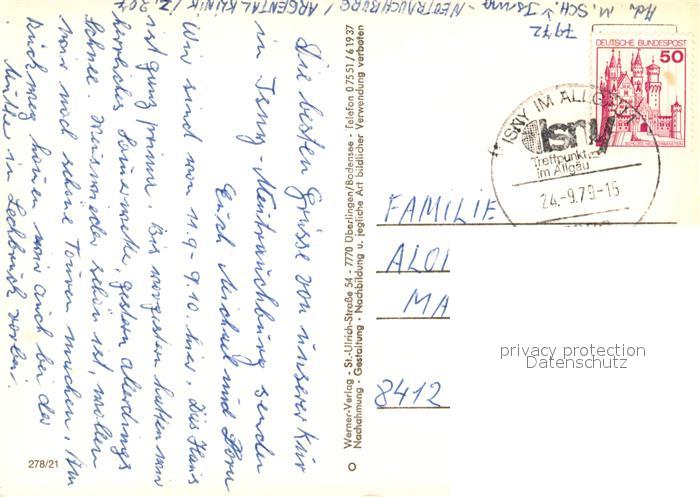 Abs. M. Sch. Isny - NEUTRAUCHBURG / ARGENTALKLINIK / Z. 207
7972
DEUTSCHE BUNDESPOST
50
ISNY IM ALLGÄU
isny
Treffpunkt
im Allgäu
24.-9.79-15
Die besten Grüsse von unserer Kur
in Isny-Neutrauchburg senden
Euch Michael und Dora
Wir sind vom 11.9 - 9.10. hier. Das Haus
ist ganz prima. Bis vorgestern hatten wir
herbstes Sommerwetter, gestern allerdings
Schnee. Wenn wieder schön ist, wollen
wir noch schöne Touren machen. Am
Rückweg hauen wir auch bei der
Mutter in Lechbruck vorbei.
Werner-Verlag - St.-Ulrich-Straße 54 - 7770 Überlingen/Bodensee - Telefon 07551/61937
Nachahmung - Gestaltung - Nachbildung u. jegliche Art bildlicher Verwendung verboten
FAMILIE
ALOI
MA
8412
privacy protection
Datenschutz
278/21